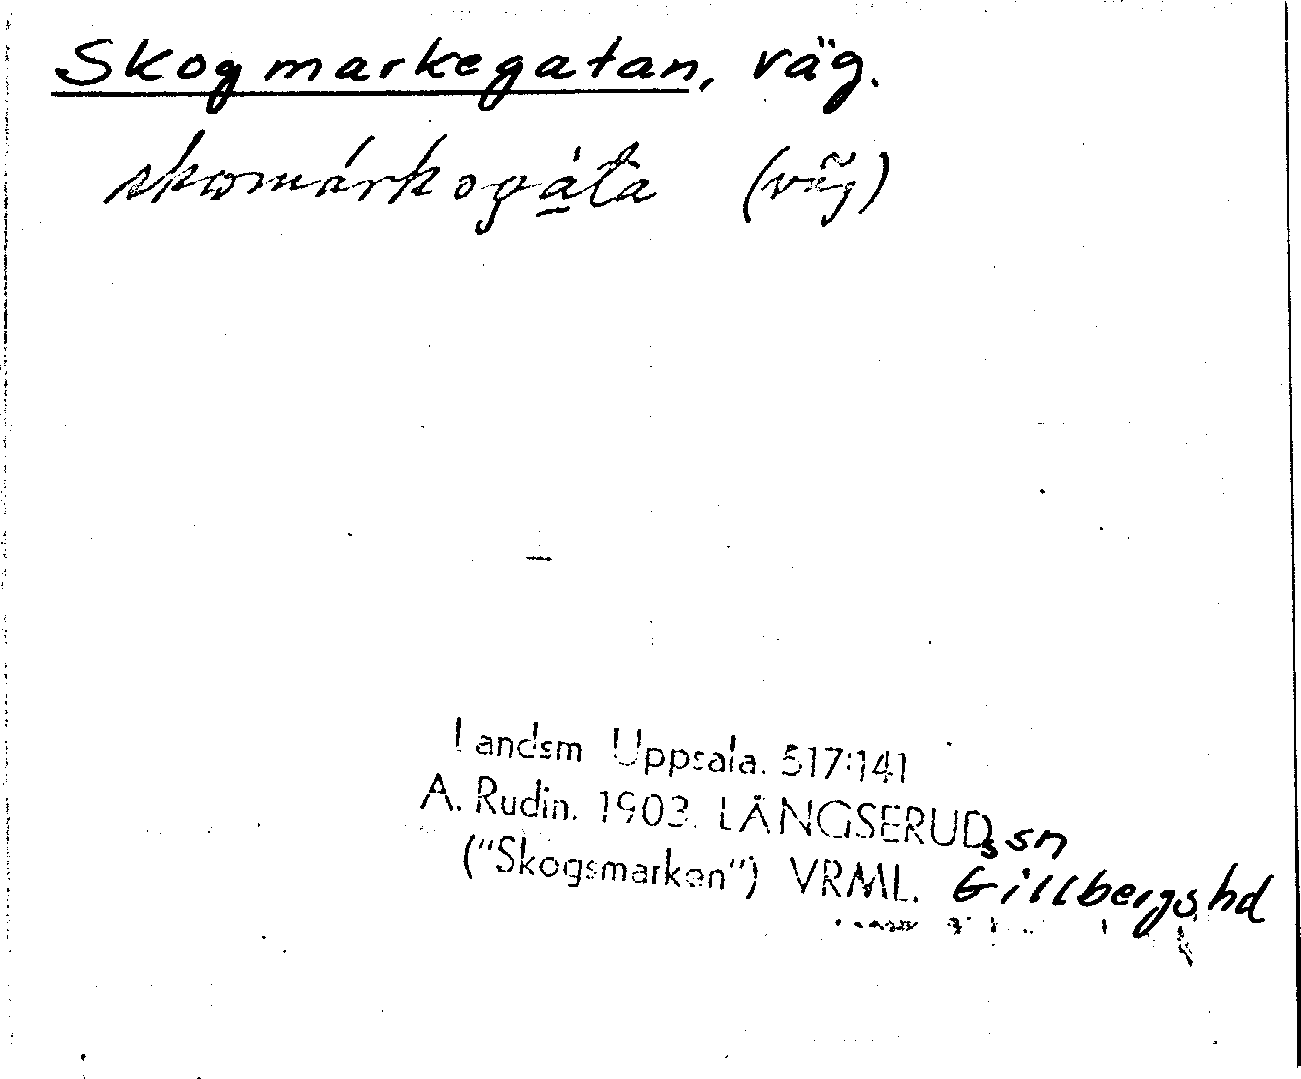 Skogmarkegatan, väg.
skomárkogáta (väg)
Landsm Uppsala. 517:141
A. Rudin. 1903. LÅNGSERUDs sn
("Skogsmarken") VRML. Gillbergs hd